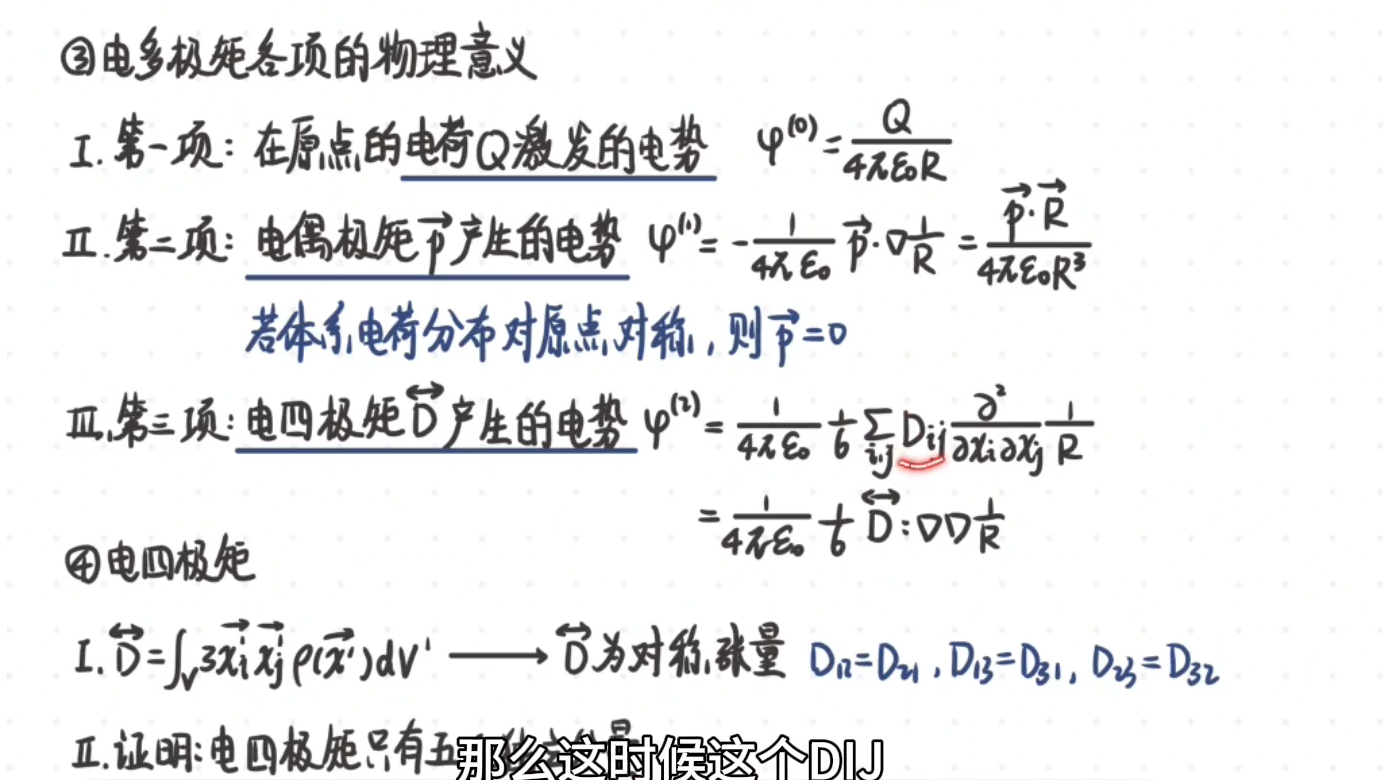 ③电多极矩各项的物理意义
I.第一项:在原点的电荷Q激发的电势 φ⁽⁰⁾=Q/4πε₀R
II.第二项:电偶极矩p⃗产生的电势 φ⁽¹⁾=-1/4πε₀ p⃗·∇1/R = p⃗·R⃗/4πε₀R³
若体系电荷分布对原点对称,则p⃗=0
III.第三项:电四极矩D⃡产生的电势 φ⁽²⁾=1/4πε₀ 1/6 Σi,j Dij ∂²/∂xi∂xj 1/R
=1/4πε₀ 1/6 D⃡:∇∇1/R
④电四极矩
I. D⃡=∫v 3x⃗i x⃗j ρ(x⃗')dV' ⟶ D⃡为对称张量 D₁₂=D₂₁, D₁₃=D₃₁, D₂₃=D₃₂
II.证明:电四极矩只有五
那么这时候这个DIJ